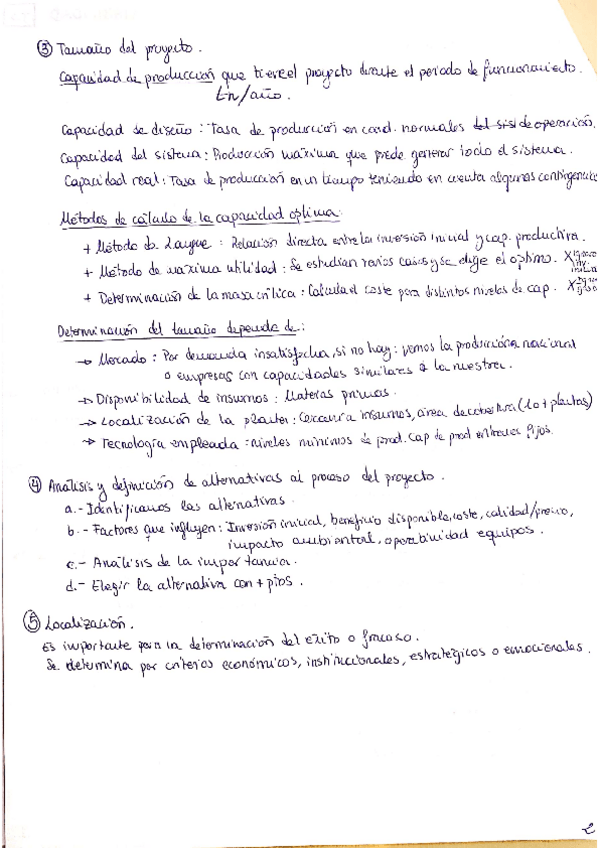 ③ Tamaño del proyecto.
Capacidad de producción que tiene el proyecto durante el periodo de funcionamiento.
tn/año.
Capacidad de diseño: Tasa de producción en cond. normales del sist de operación.
Capacidad del sistema: Producción máxima que puede generar todo el sistema.
Capacidad real: Tasa de producción en un tiempo teniendo en cuenta algunas contingencias
Métodos de cálculo de la capacidad optima:
+ Método de Langue: Relación directa entre la inversión inicial y cap. productiva.
+ Método de maxima utilidad: Se estudian varios casos y se elige el optimo. X
+ Determinación de la masa crítica: Calcula el coste para distintos niveles de cap. X
Determinación del tamaño depende de:
→ Mercado: Por demanda insatisfecha, si no hay: vemos la producción nacional
o empresas con capacidades similares a la nuestra.
→ Disponibilidad de insumos: Materias primas.
→ Localización de la planta: Cercanía insumos, area de cobertura (1 o + plantas)
→ Tecnología empleada: niveles minimos de prod. cap de prod fijos.
④ Análisis y definición de alternativas al proceso del proyecto.
a.- Identificamos las alternativas.
b.- Factores que influyen: Inversión inicial, beneficio disponible, coste, calidad/precio,
impacto ambiental, operatividad equipos.
c.- Análisis de la importancia.
d.- Elegir la alternativa con + ptos.
⑤ Localización.
Es importante para la determinación del exito o fracaso.
Se determina por criterios económicos, institucionales, estratégicos o emocionales.
2